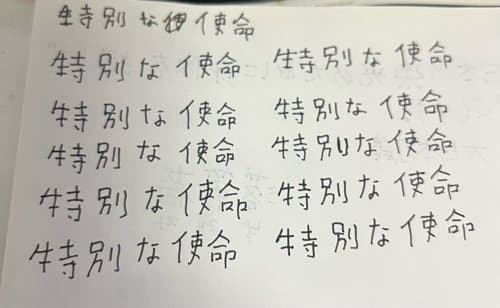 特別な使命
特別な使命 特別な使命
特別な使命 特別な使命
特別な使命 特別な使命
特別な使命 特別な使命
特別な使命 特別な使命